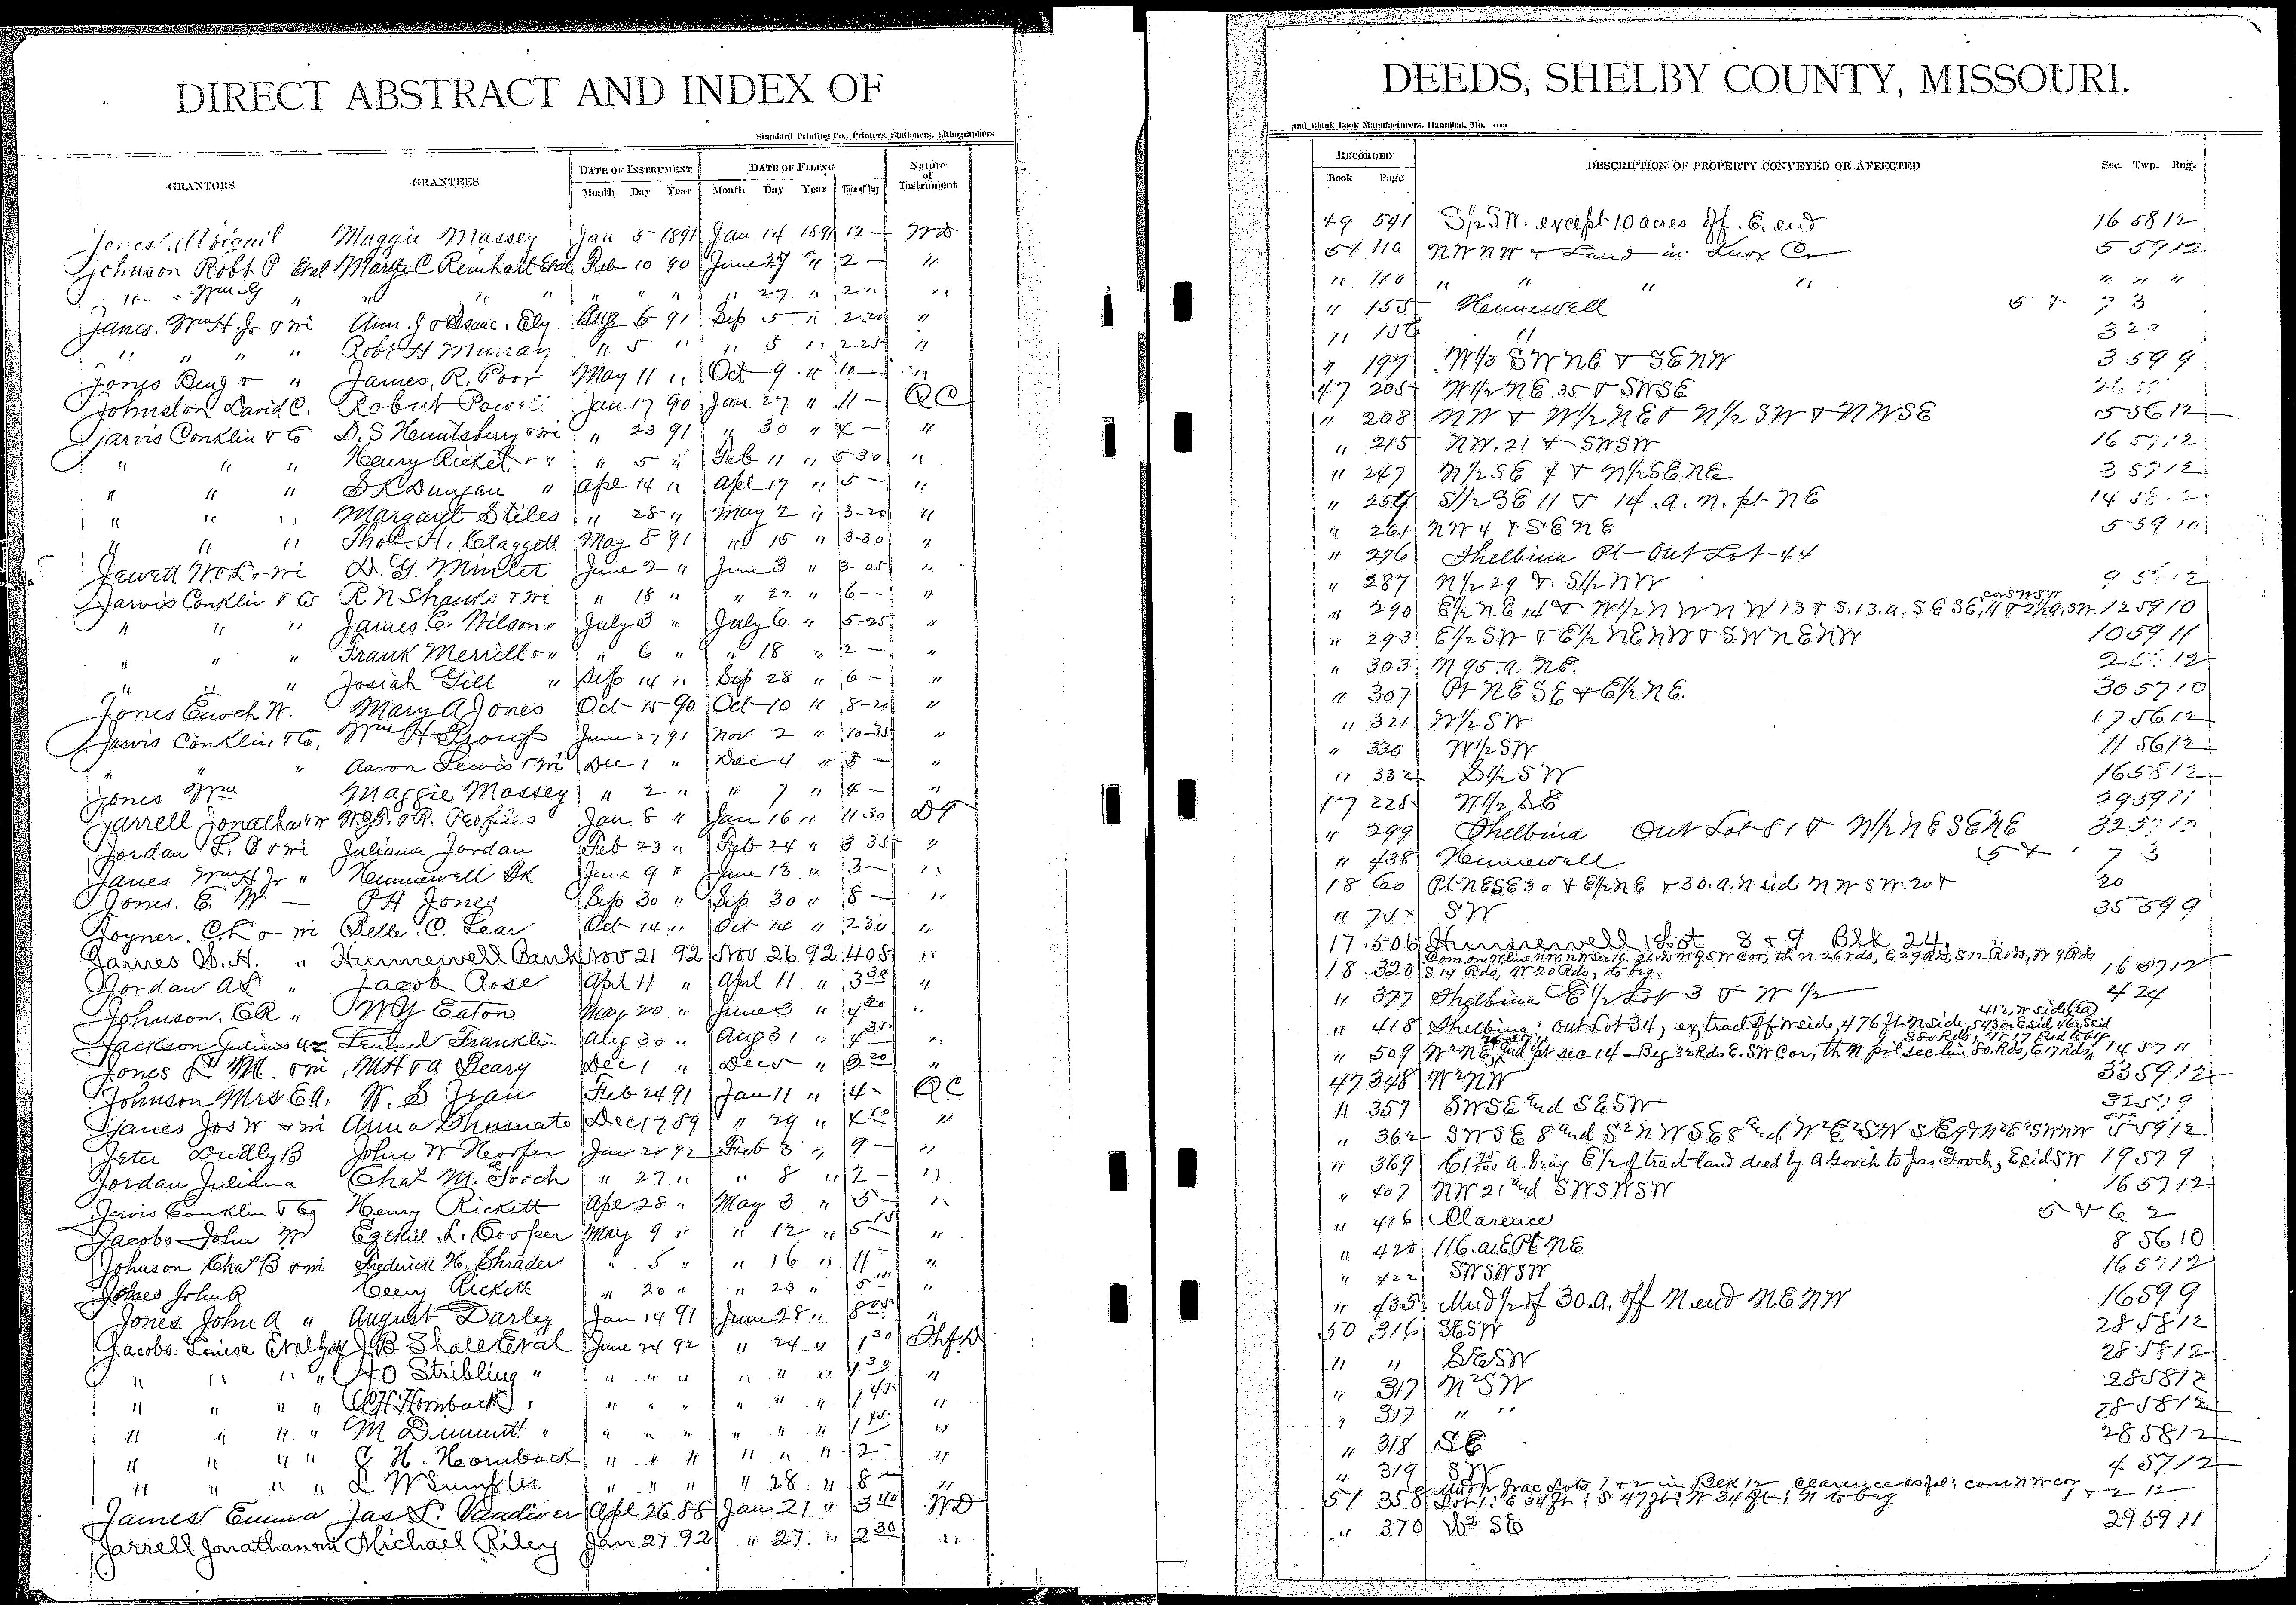 DIRECT ABSTRACT AND INDEX OF
Standard Printing Co., Printers, Stationers, Lithographers
GRANTORS GRANTEES DATE OF INSTRUMENT DATE OF FILING Nature of Instrument
Month Day Year Month Day Year Time of Day
Jones, Abigail Maggie Massey Jan 5 1891 Jan 14 1891 12 — WD
Johnson Robt P Etal C Reinhart Etal Feb 10 90 June 27 " 2 — "
" " Wm G " " " " " " " " 27 " 2 " "
Janes. Wm H Jr & wi Ann. J & Isaac. Ely Aug 6 91 Sep 5 " 2-20 "
" " " " Robt H Murray " 5 " " 5 " 2-25 "
Jones Benj & " James, R. Poor May 11 " Oct 9 " 10 — "
Johnston David C. Robert Powell Jan 17 90 Jan 27 " 11 — QC
Jarvis Conklin & Co D. S & wi " 23 91 " 30 " 4 — "
" " " Henry Ricket & " " 5 " Feb 11 " 5 30 "
" " " S K Duncan " Apl 14 " Apl 17 " 5 — "
" " " Margaret Stiles " 28 " May 2 " 3-20 "
" " " Thos. H. Claggett May 8 91 " 15 " 3-30 "
Jewett W. L & wi D. G. Minter June 2 " June 3 " 3-05 "
Jarvis Conklin & Co R N Shanks & wi " 18 " " 22 " 6 — "
" " " James E. Wilson " July 3 " July 6 " 5-25 "
" " " Frank Merrill & " " 6 " " 18 " 2 — "
" " " Josiah Gill " Sep 14 " Sep 28 " 6 — "
Jones Enoch W. Mary A Jones Oct 15 90 Oct 10 " 8-20 "
Jarvis Conklin, & Co, Wm H June 27 91 Nov 2 " 10-35 "
" " " Aaron Lewis & wi Dec 1 " Dec 4 " 5 — "
Jones Wm Maggie Massey " 2 " " 7 " 4 — "
Jarrell Jonathan & W & R. Peoples Jan 8 " Jan 16 " 11 30 DT
Jordan L. & wi Juliana Jordan Feb 23 " Feb 24 " 3 35 "
Janes Wm H Jr " Hunnewell Bk June 9 " June 13 " 3 — "
Jones. E. W — P H Jones Sep 30 " Sep 30 " 8 — "
Joyner. C. K & wi Belle. C. Lear Oct 14 " Oct 14 " 2 30 "
James W. H. " Hunnewell Bank Nov 21 92 Nov 26 92 4 05 "
Jordan A L " Jacob Rose April 11 " April 11 " 3 30 "
Johnson. E R " W Y Eaton May 20 " June 3 " 4 30 "
Jackson Julius A Franklin Aug 30 " Aug 31 " 4 35 "
Jones L M. & wi, M H & A Geary Dec 1 " Dec 5 " 9 20 "
Johnson Mrs E A. W. S Jean Feb 24 91 Jan 11 " 4 — QC
Janes Jos W & wi Anna Dec 17 89 " 29 " 4 10 "
Jeter Dudly B John W Hooper Jan 20 92 Feb 3 " 9 — "
Jordan Juliana Chas M. Gooch " 27 " " 8 " 2 — "
Jarvis Conklin & Co Henry Rickett Apl 28 " May 3 " 5 — "
Jacobs John W Ezekiel L. Cooper May 9 " " 12 " 5 15 "
Johnson Chas B & wi Frederick H. Shrader " 5 " " 16 " 11 — "
Jones John R Henry Rickett " 20 " " 23 " 5 "
Jones John A " August Darley Jan 14 91 June 28 " 8 05 "
Jacobs. Louisa Etal J. B Shale Etal June 24 92 " 24 " 1 30 Shf D
" " " " A O Stribling " " " " " " " 1 30 "
" " " " Hornback " " " " " " " 1 45 "
" " " " M Dimmitt " " " " " " " 1 45 "
" " " " H. Hornback " " " " " " 2 — "
" " " " L W Sumpter " " " " 28 " 8 — "
James Emma Jas L. Vandiver Apl 26 88 Jan 21 " 3 40 WD
Jarrell Jonathan & wi Michael Riley Jan 27 92 " 27 " 2 30 "
DEEDS, SHELBY COUNTY, MISSOURI.
and Blank Book Manufacturers, Hannibal, Mo.
RECORDED DESCRIPTION OF PROPERTY CONVEYED OR AFFECTED Sec. Twp. Rng.
Book Page
49 541 S½ SW. except 10 acres off. E. end 16 58 12
51 110 NW NW & Land in Knox Co 5 59 12
" 110 " " " " " " "
" 155 Hunnewell 5 & 7 3
" 156 " 3 29
" 197 W½ SW NE & SE NW 3 59 9
47 205 W½ NE 35 & SWSE
" 208 NW & W½ NE & N½ SW & NWSE 5 56 12
" 215 NW. 21 & SWSW 16 57 12
" 247 N½ SE 4 & N½ SE NE 3 57 12
" 259 S½ SE 11 & 14. a. n. pt NE 14 58
" 261 NW 4 & SE NE 5 59 10
" 276 Shelbina Pt Out Lot 44
" 287 N½ 29 & S½ NW 9 56 12
" 290 E½ NE 14 & W½ NW NW 13 & S. 13. a. SE SE, 11 & 2½ a, SW. cor SWSW 12 59 10
" 293 E½ SW & E½ NENW & SW NENW 10 59 11
" 303 N 95. a. NE.
" 307 Pt NE SE & E½ NE. 30 57 10
" 321 W½ SW 17 56 12
" 330 W½ SW 11 56 12
" 332 S½ SW 16 58 12
17 225 W½ SE 29 59 11
" 299 Shelbina Out Lot 81 & N½ NE SENE
" 438 Hunnewell 5 & 7 3
18 60 Pt NESE 30 & E½ NE & 30. a. N sid NW SW. 20 & 20
" 75 SW 35 59 9
17 506 Hunnewell Lot 8 & 9 Blk 24.
18 320 Com on W line NW. NW Sec 16. 26 rds N of SW cor, th n. 26 rds, E 29 Rds, S 12 Rds, W 9 Rds
S 14 Rds, W 20 Rds, to beg. 16 57 12
" 377 Shelbina E½ Lot 3 & W½ 4 24
" 418 Shelbina: Out Lot 34, ex, tract off W side, 476 ft N side, 543 on E sid, 462 S sid 412, W sid
" 509 W² NE and pt sec 14 — Beg 32 Rds E. SW Cor, th N pil sec lin 80. Rds, E 17 Rds, S 80 Rds, W 17 Rds to beg 14 57 11
47 348 W² NW 33 59 12
" 357 SWSE and SESW 32 57 9
" 362 SWSE 8 and S² NWSE 8 and W² E² SW SE 9 & N² E² SWNW 5 59 12
" 369 a. being E½ of tract land deed by A Gooch to Jas Gooch, E sid SW 19 57 9
" 407 NW 21 and SWSWSW 16 57 12
" 416 Clarence 5 & 6 2
" 420 116. a. E Pt NE 8 56 10
" 422 SWSWSW 16 57 12
" 435 Und ½ of 30. a. off N end NE NW 16 59 9
50 316 SESW 28 58 12
" " SESW 28 58 12
" 317 N² SW 28 58 12
" 317 " " 28 58 12
" 318 SE 28 58 12
" 319 SW 4 57 12
51 358 Und ½ Frac Lots 1 & 2 in Blk 12 Clarence as fol; com n w cor
Lot 1; E 34 ft; S 47 ft; W 34 ft; N to beg 1 & 2 12
" 370 W² SE 29 59 11